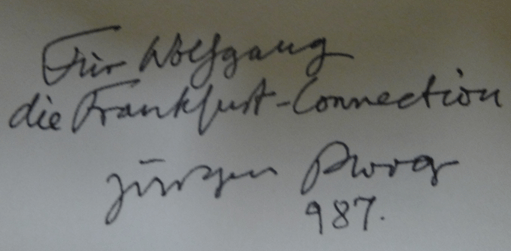 Für Wolfgang
die Frankfurt-Connection
Jürgen
987.